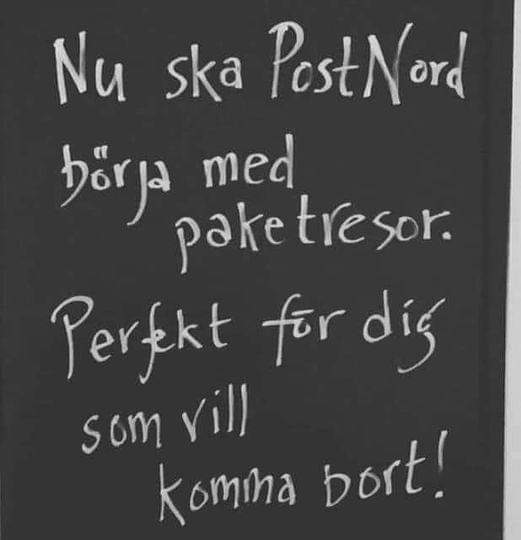 Nu ska PostNord
börja med
paketresor.
Perfekt för dig
som vill
komma bort!